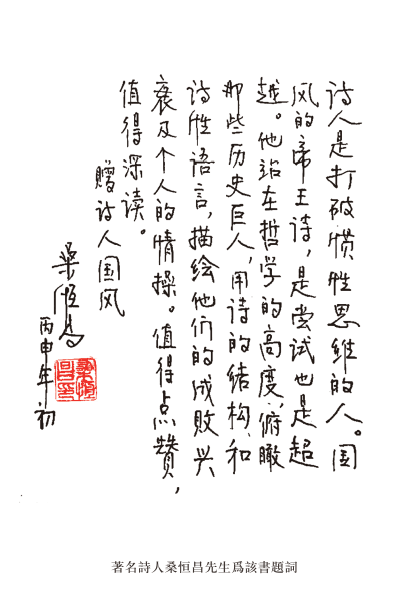 诗人是打破惯性思维的人。国
风的帝王诗，是尝试也是超
越。他站在哲学的高度，俯瞰
那些历史巨人，用诗的结构、和
诗性语言，描绘他们的成败兴
衰及个人的情操。值得点赞，
值得深读。
赠诗人国风
桑恒昌
丙申年初
桑恒昌印
著名詩人桑恒昌先生爲該書題詞